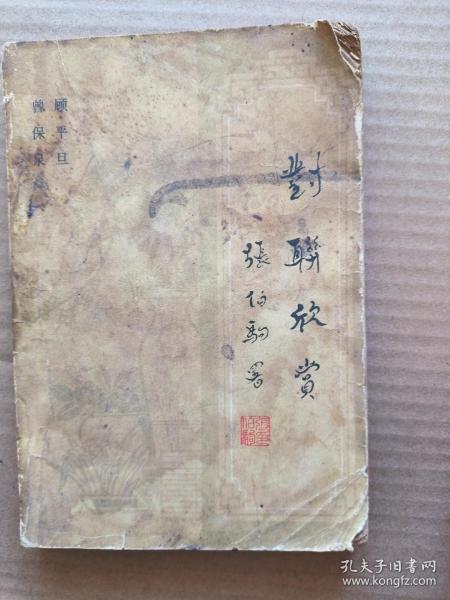 對聯欣賞
張伯駒署
顾平旦
曾保泉
孔夫子旧书网
www.kongfz.com